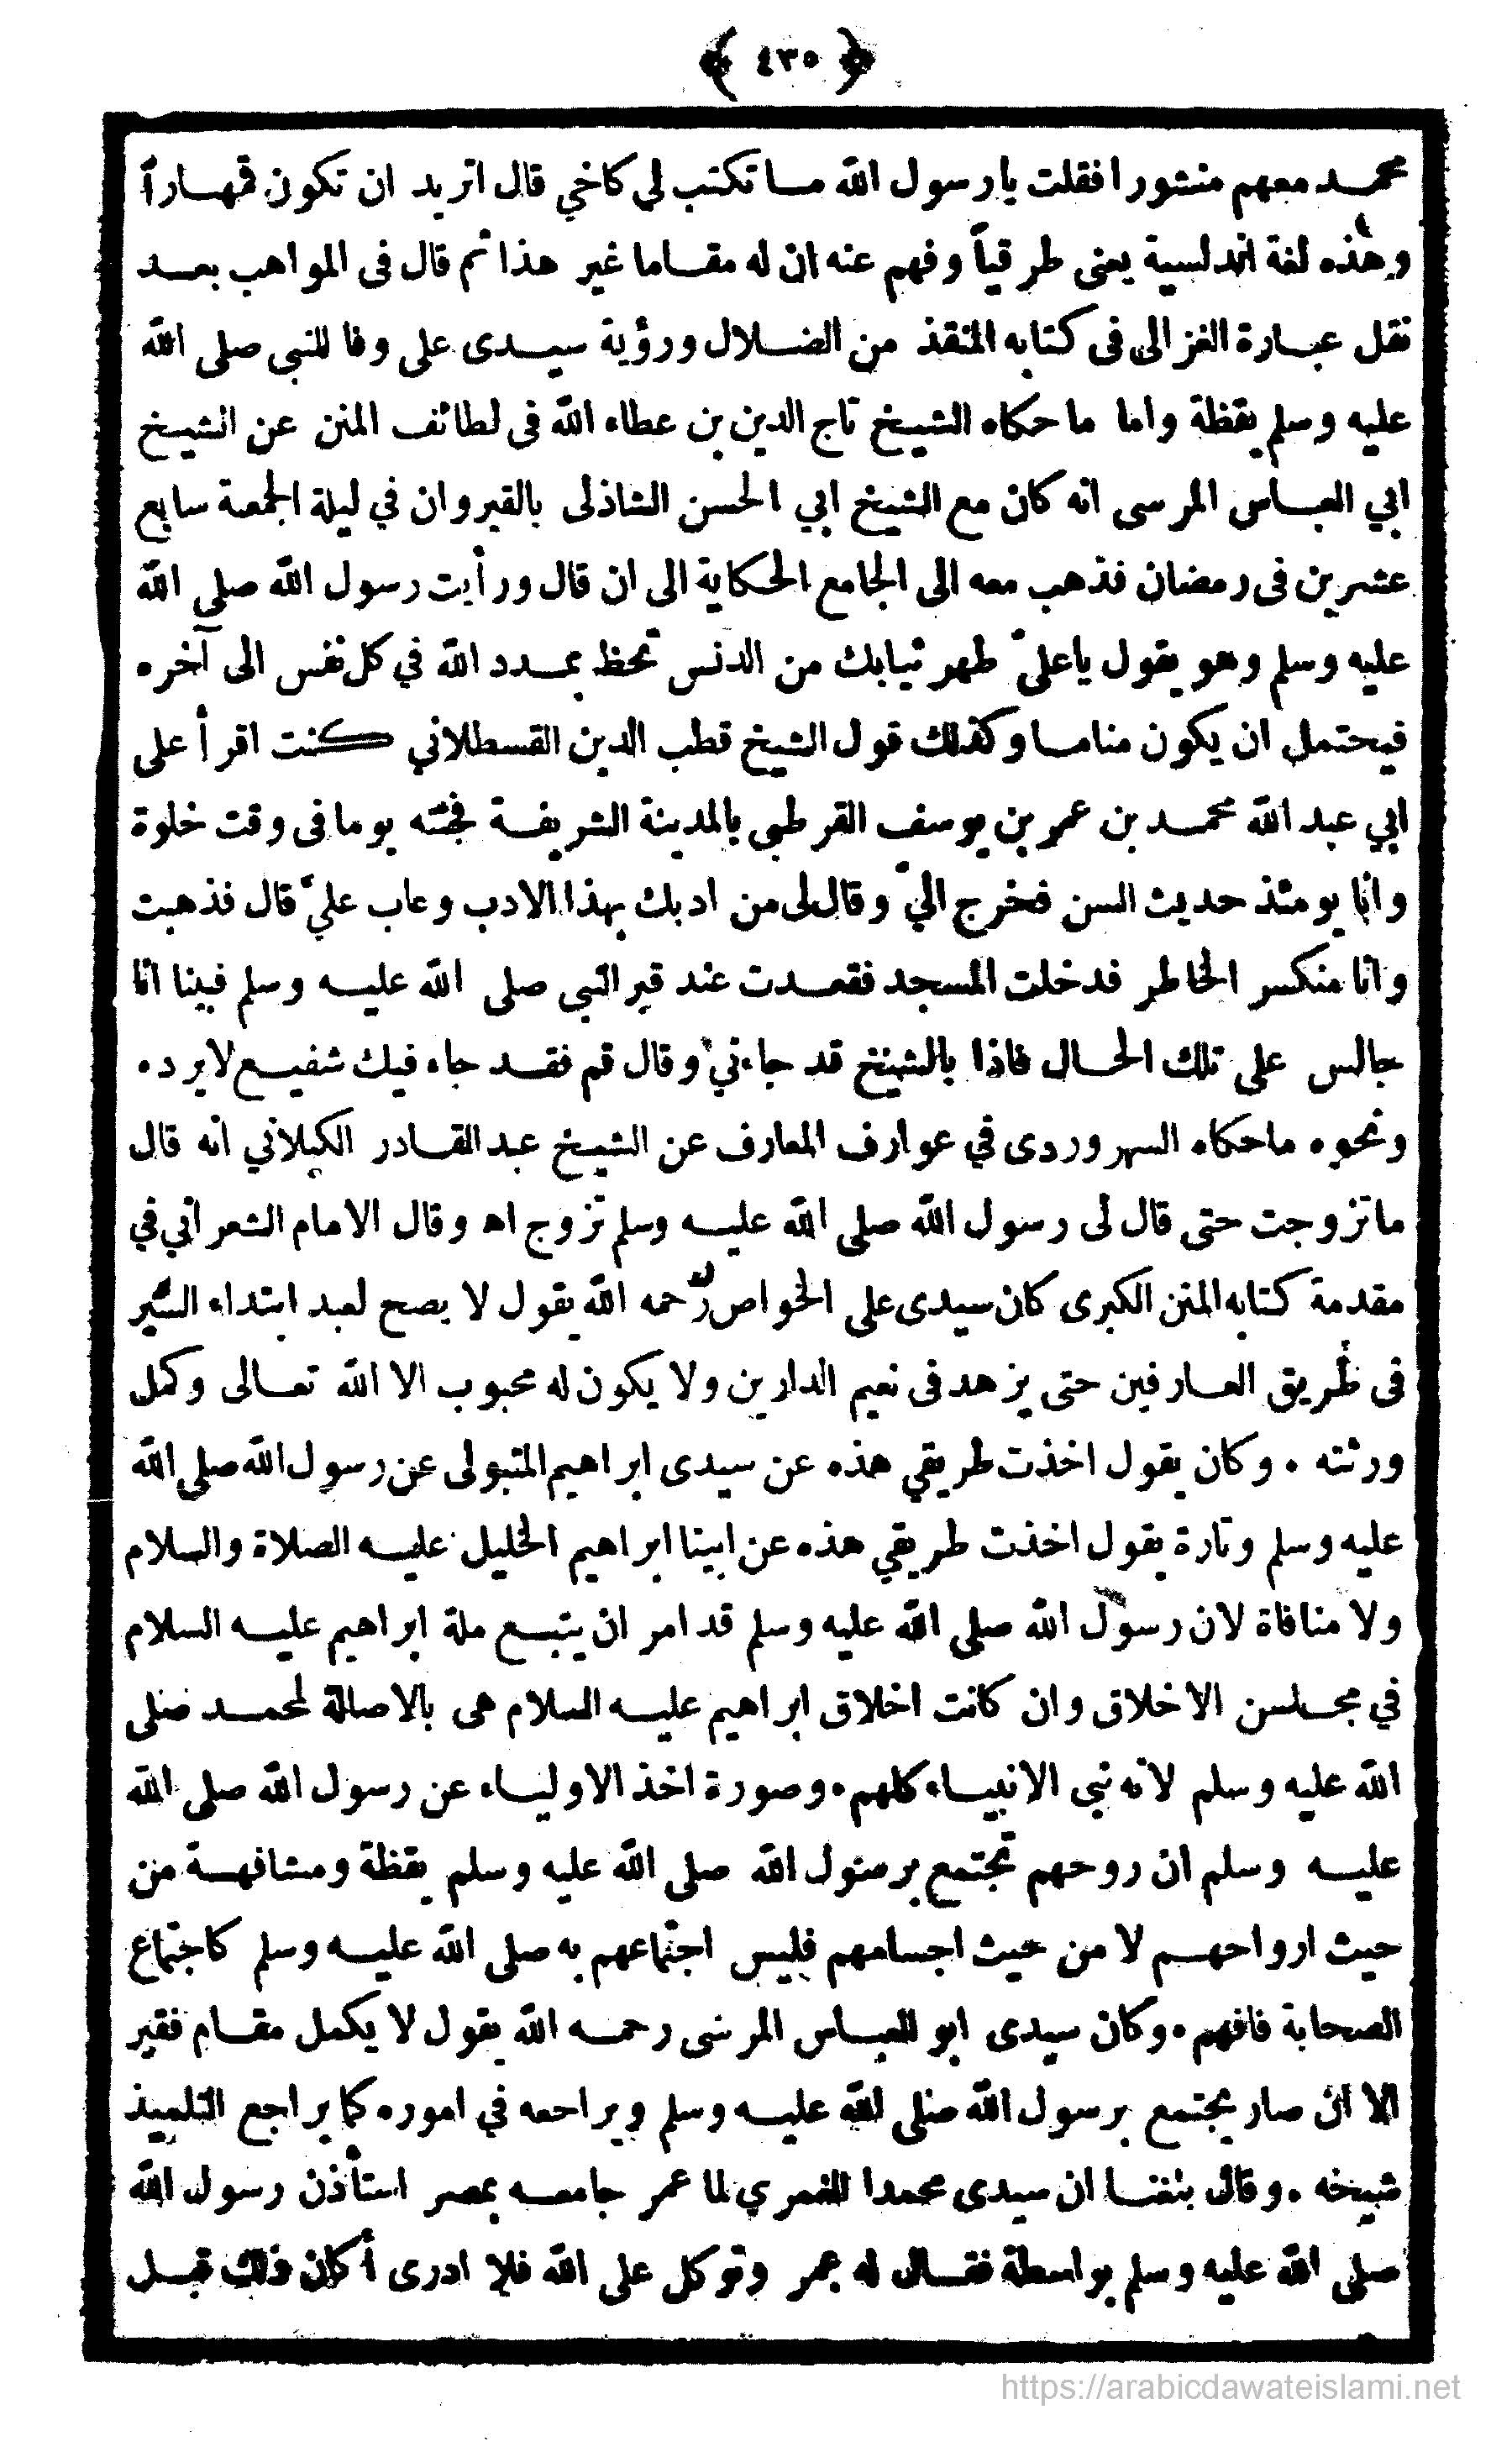 ﴿ ٤٣٥ ﴾
محمد معهم منشورا فقلت يا رسول الله ما تكتب لي كاخي قال اتريد ان تكون قمهاراً
وهذه لغة اندلسية يعنى طرقياً وفهم عنه ان له مقاما غير هذا ثم قال فى المواهب بعد
نقل عبارة الغزالى فى كتابه المنقذ من الضلال ورؤية سيدى على وفا للنبى صلى الله
عليه وسلم يقظة واما ما حكاه الشيخ تاج الدين بن عطاء الله فى لطائف المنن عن الشيخ
ابي العباس المرسى انه كان مع الشيخ ابي الحسن الشاذلى بالقيروان في ليلة الجمعة سابع
عشرين فى رمضان فذهب معه الى الجامع الحكاية الى ان قال ورأيت رسول الله صلى الله
عليه وسلم وهو يقول يا علىّ طهر ثيابك من الدنس تحظ بمدد الله في كل نفس الى آخره
فيحتمل ان يكون مناما وكذلك قول الشيخ قطب الدين القسطلاني كنت اقرأ على
ابي عبد الله محمد بن عمر بن يوسف القرطبى بالمدينة الشريفة فجئته يوما فى وقت خلوة
وانا يومئذ حديث السن فخرج اليّ وقال لى من ادبك بهذا الادب وعاب عليّ قال فذهبت
وانا منكسر الخاطر فدخلت المسجد فقعدت عند قبر النبى صلى الله عليه وسلم فبينا انا
جالس على تلك الحال فاذا بالشيخ قد جاءني وقال قم فقد جاء فيك شفيع لا يرد ه
ونحوه ما حكاه السهروردى في عوارف المعارف عن الشيخ عبد القادر الكيلاني انه قال
ما تزوجت حتى قال لى رسول الله صلى الله عليه وسلم تزوج اه وقال الامام الشعراني في
مقدمة كتابه المنن الكبرى كان سيدى على الخواص رحمه الله يقول لا يصح لعبد ابتداء السير
فى طريق العارفين حتى يزهد فى نعيم الدارين ولا يكون له محبوب الا الله تعالى وكمل
ورثته ٠ وكان يقول اخذت طريقي هذه عن سيدى ابراهيم المتبولى عن رسول الله صلى الله
عليه وسلم وتارة يقول اخذت طريقي هذه عن ابينا ابراهيم الخليل عليه الصلاة والسلام
ولا منافاة لان رسول الله صلى الله عليه وسلم قد امر ان يتبع ملة ابراهيم عليه السلام
في محاسن الاخلاق وان كانت اخلاق ابراهيم عليه السلام هى بالاصالة لمحمد صلى
الله عليه وسلم لانه نبى الانبياء كلهم ٠ وصورة اخذ الاولياء عن رسول الله صلى الله
عليه وسلم ان روحهم تجتمع برسول الله صلى الله عليه وسلم يقظة ومشافهة من
حيث ارواحهم لا من حيث اجسامهم فليس اجتماعهم به صلى الله عليه وسلم كاجتماع
الصحابة فافهم ٠ وكان سيدى ابو العباس المرسى رحمه الله يقول لا يكمل مقام فقير
الا ان صار يجتمع برسول الله صلى الله عليه وسلم ويراجعه في اموره كما يراجع التلميذ
شيخه ٠ وقال بلغنا ان سيدى محمدا الغمري لما عمر جامعه بمصر استأذن رسول الله
صلى الله عليه وسلم بواسطة فقال له عمر وتوكل على الله فلا ادرى أكان ذلك قبل
https://arabicdawateislami.net